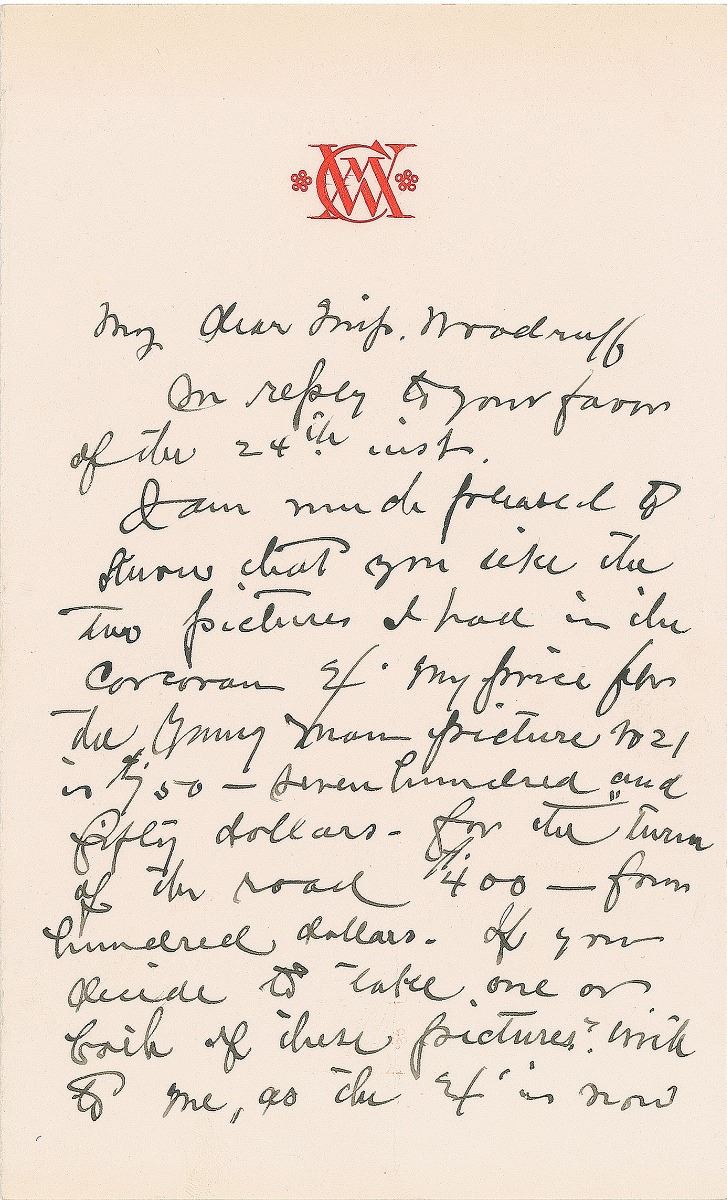 CMW
My dear Miss. Woodruff
In reply to your favor
of the 24th inst.
I am much pleased to
know that you like the
two pictures I had in the
Corcoran Ex. My price for
the Young Man picture No 21
is $750 — seven hundred and
fifty dollars - for the "Turn
of the road $400 — four
hundred dollars. If you
decide to take one or
both of these pictures? write
to me, as the Ex' is now